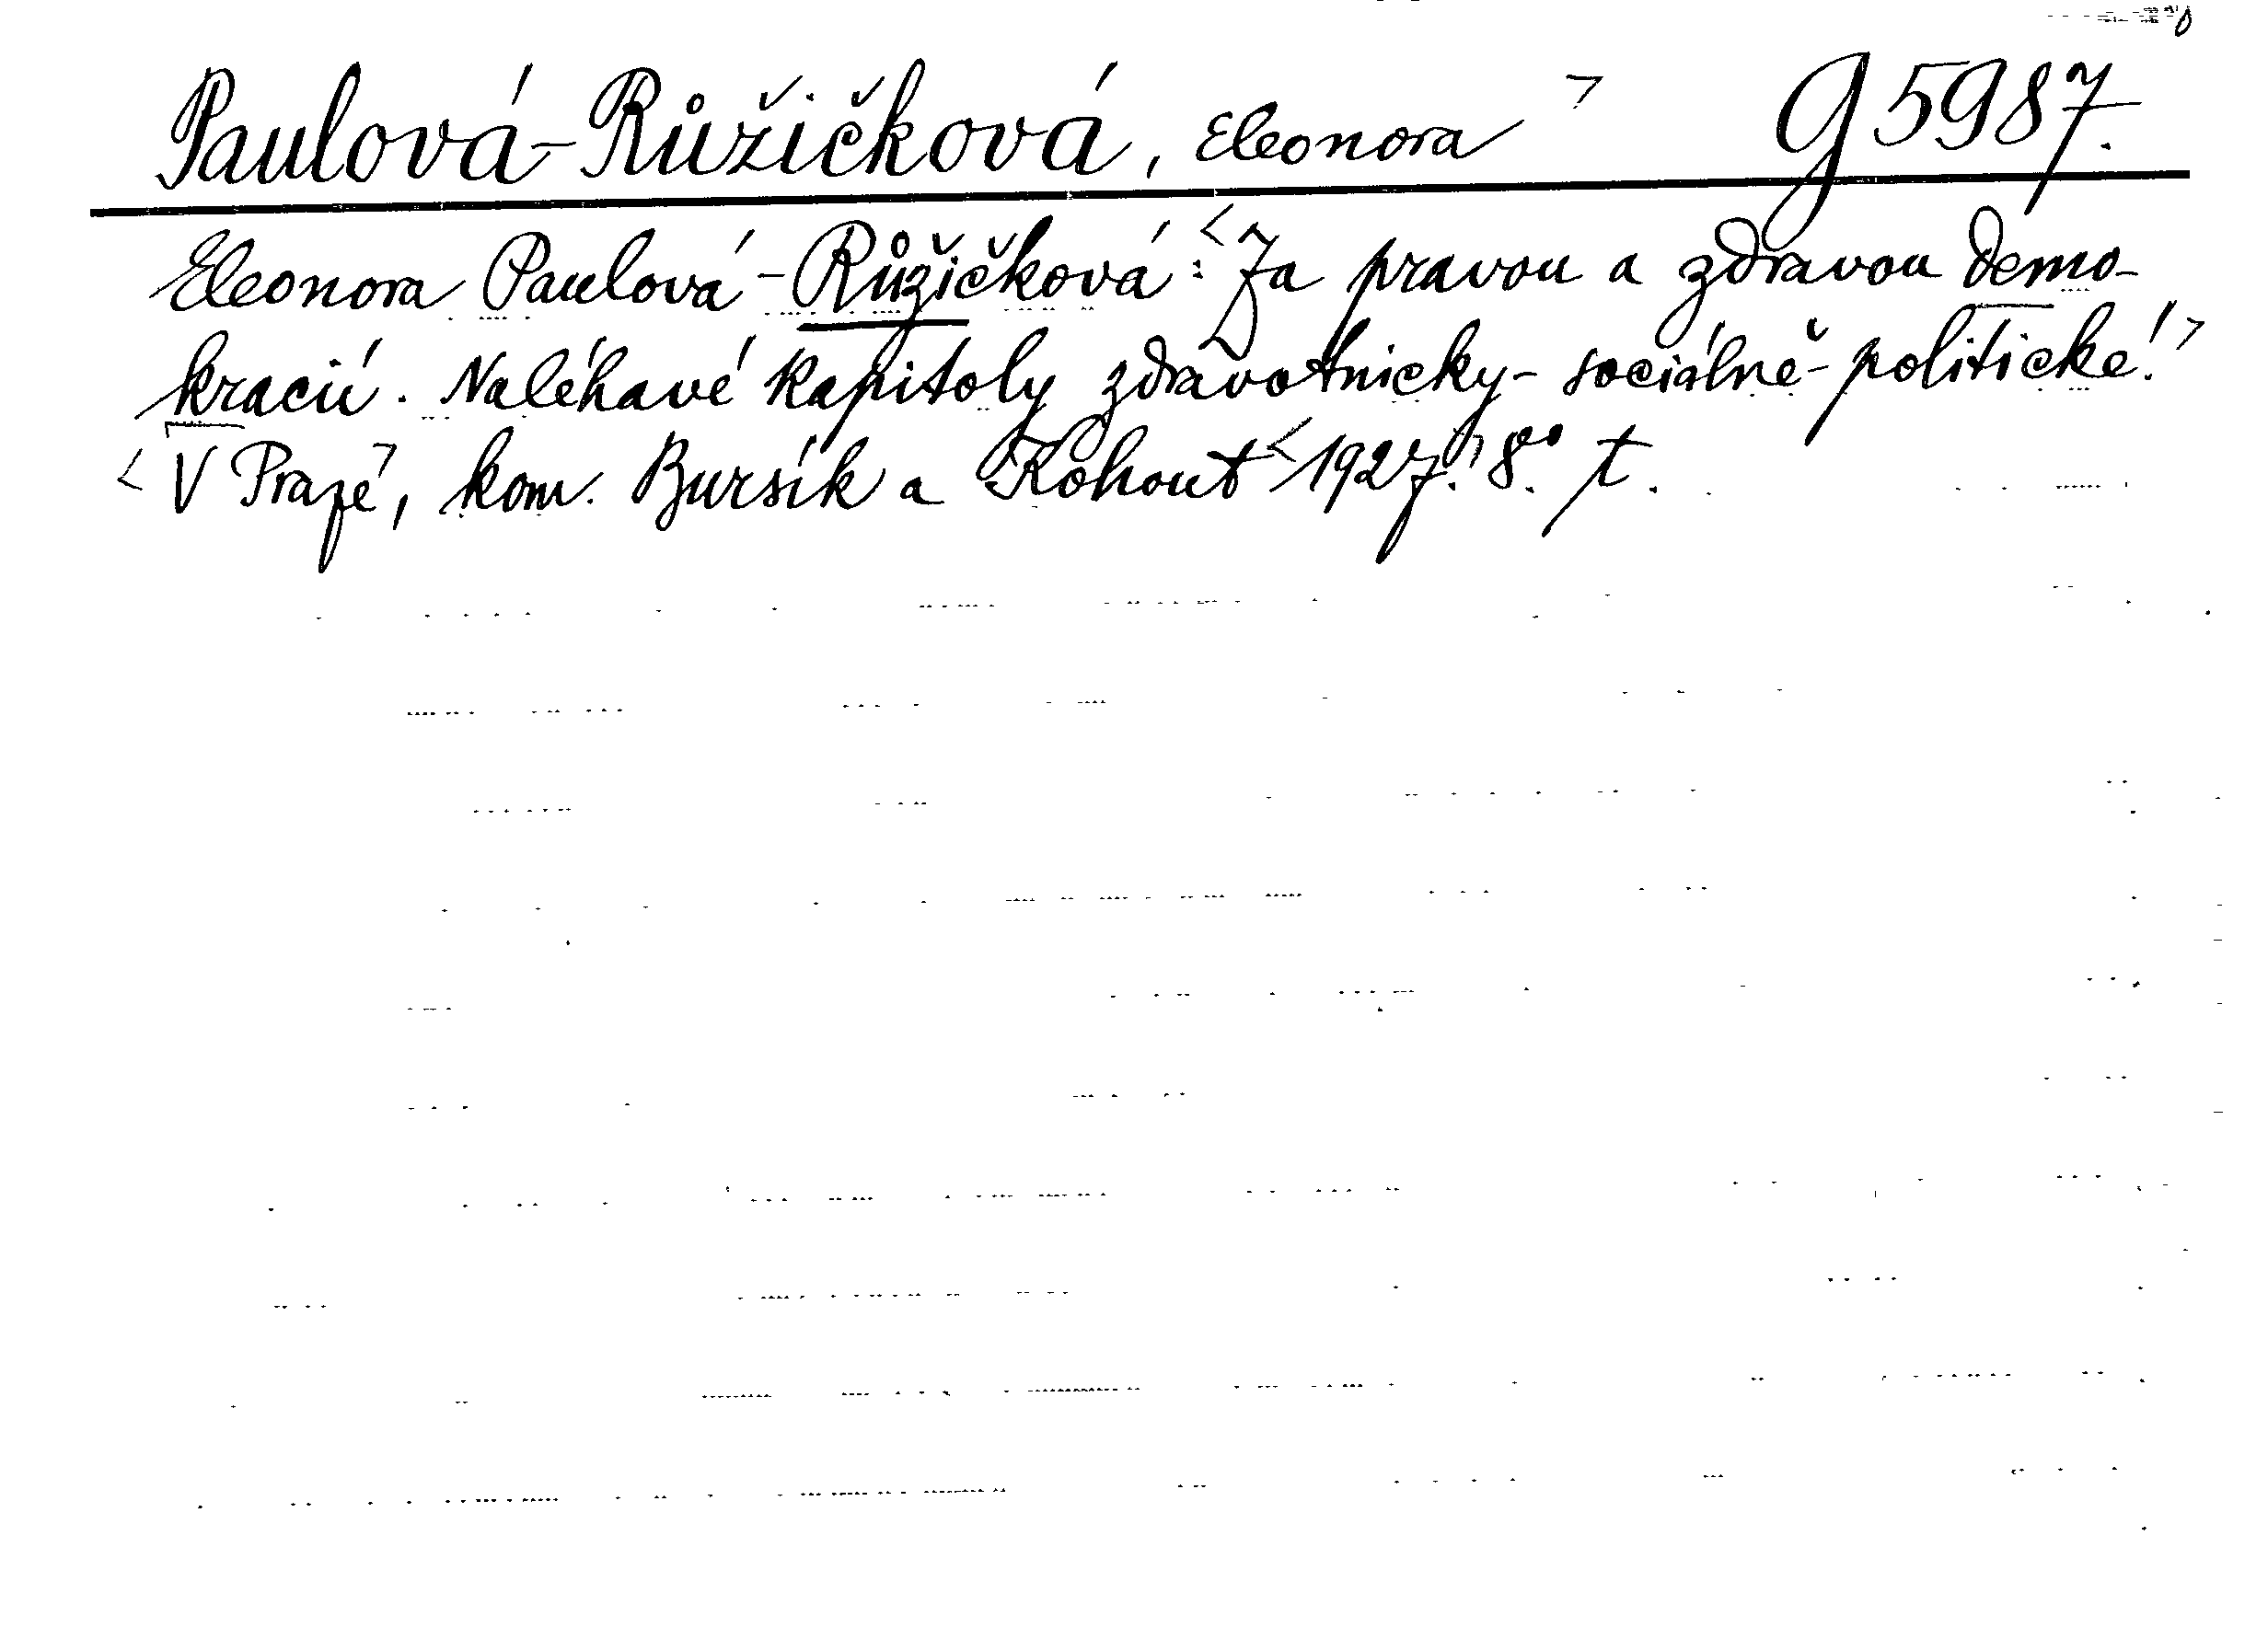 Paulová-Růžičková, Eleonora > g 5987.
Eleonora Paulová-Růžičková: < Za pravou a zdravou demo-
kracii. Naléhavé kapitoly zdravotnicky-sociálně-politické. >
< V Praze >, kom. Bursík a Kohout < 1927. > 8º. t.